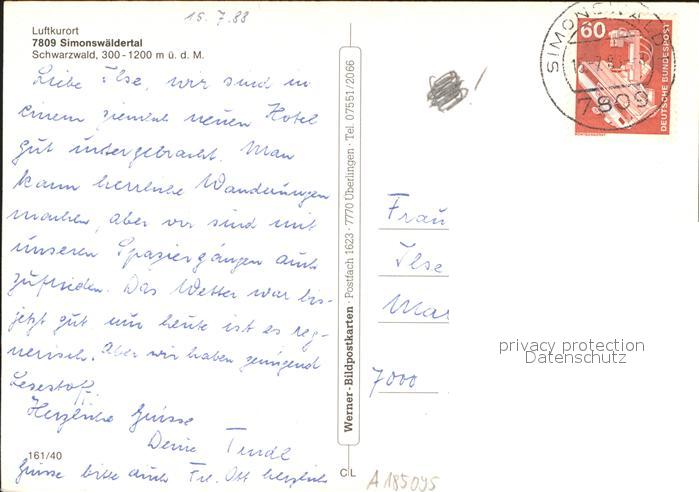 15.7.88
Luftkurort
7809 Simonswäldertal
Schwarzwald, 300-1200 m ü. d. M.
Liebe Ilse, wir sind in
einem ziemlich neuen Hotel
gut untergebracht. Man
kann herrliche Wanderungen
machen, aber wir sind mit
unseren Spaziergängen auch
zufrieden. Das Wetter war bis-
jetzt gut nur heute ist es reg-
nerisch. Aber wir haben genügend
Lesestoff.
Herzliche Grüsse
Deine Trudl
161/40
Grüsse bitte auch Frl. Ott herzlich
Werner-Bildpostkarten · Postfach 1623 · 7770 Überlingen · Tel. 07551/2066
C/L
SIMONSWALD
7809
60
DEUTSCHE BUNDESPOST
Frau
Ilse
Mar
7000
privacy protection
Datenschutz
A185095